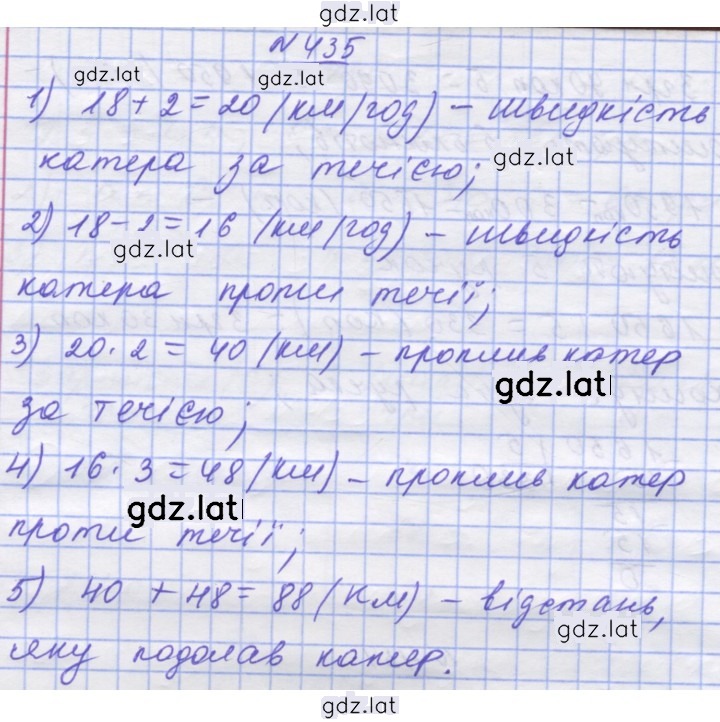 gdz.lat
№ 435
gdz.lat
1) 18 + 2 = 20 (км/год) – швидкість
gdz.lat
катера за течією;
gdz.lat
2) 18 – 2 = 16 (км/год) – швидкість
gdz.lat
катера проти течії;
3) 20 · 2 = 40 (км) – проплив катер
gdz.lat
за течією;
4) 16 · 3 = 48 (км) – проплив катер
gdz.lat
проти течії;
5) 40 + 48 = 88 (км) – відстань,
gdz.lat
яку подолав катер.
gdz.lat